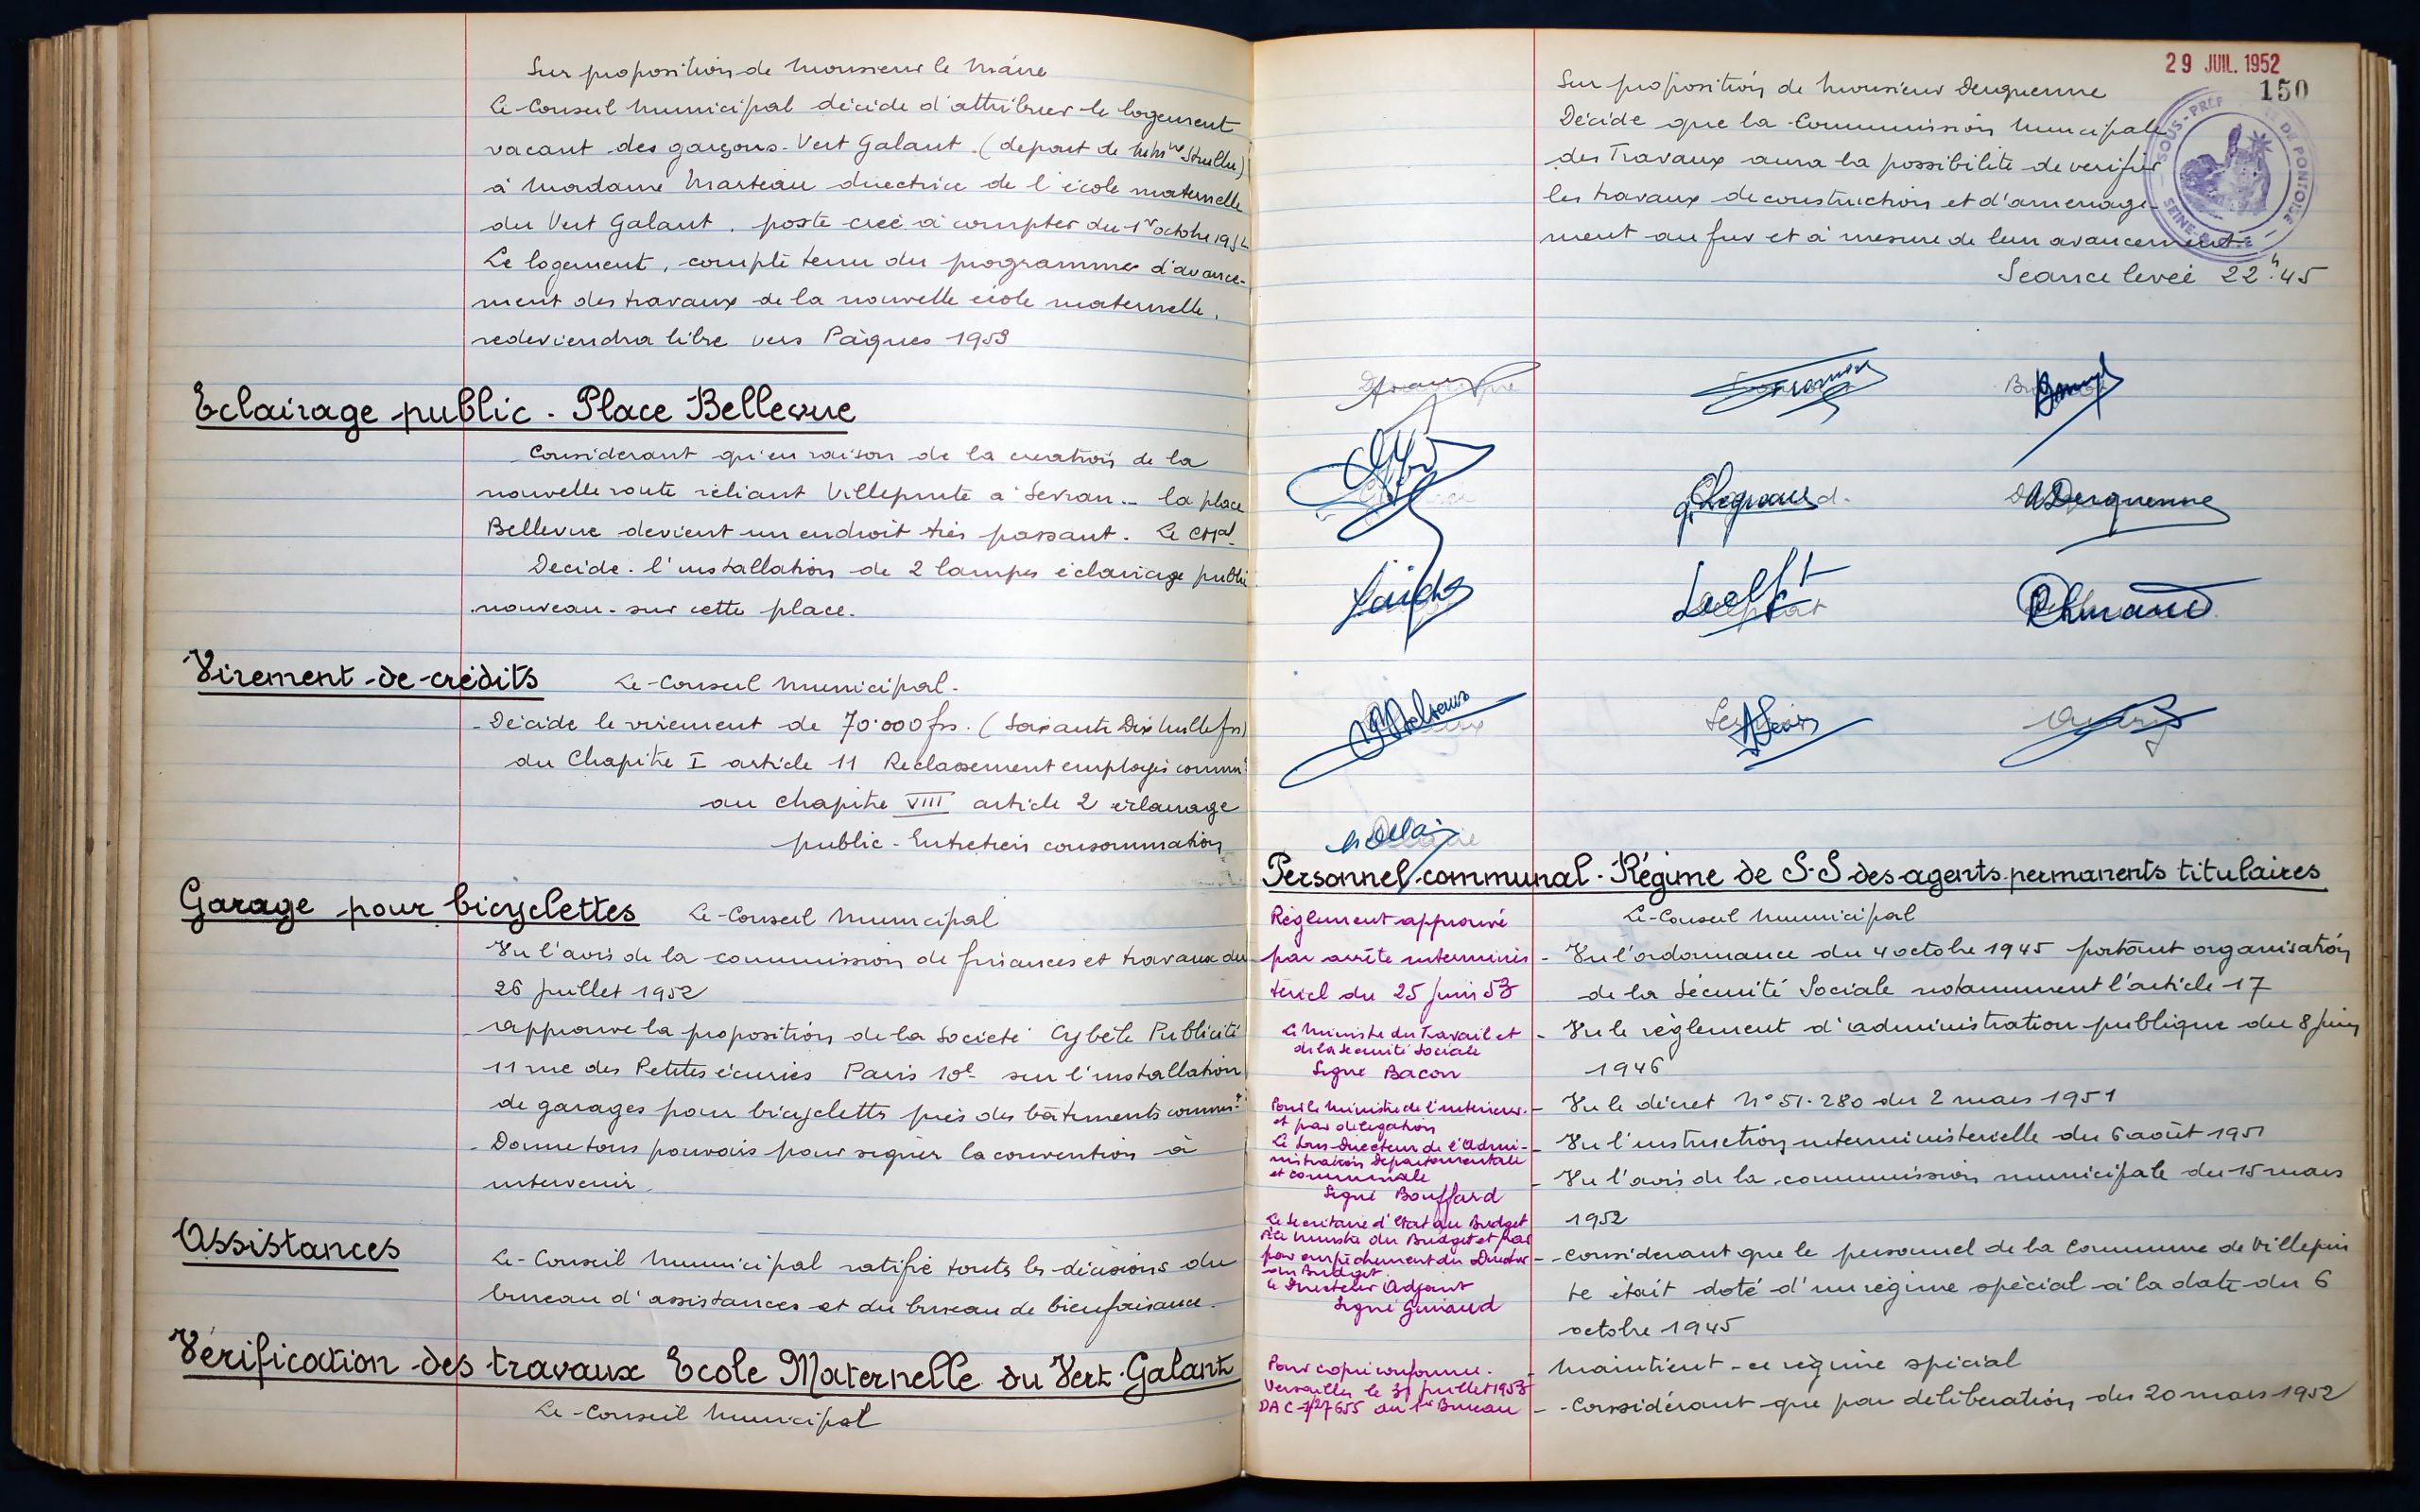 Sur proposition de Monsieur le Maire
Le Conseil Municipal décide d'attribuer le logement
vacant des garçons - Vert Galant. (depart de
à Madame Marteau directrice de l'école maternelle
du Vert Galant, poste créé à compter du 1er octobre 1952
Le logement, compte tenu du programme d'avance-
ment des travaux de la nouvelle école maternelle,
redeviendra libre vers Pâques 1953
Eclairage public. Place Bellevue
Considerant qu'en raison de la creation de la
nouvelle route reliant Villepinte à Sevran - la place
Bellevue devient un endroit très passant. Le CMal
Decide. l'installation de 2 lampes éclairage public
nouveau - sur cette place.
Virement de crédits Le Conseil Municipal.
- Décide le virement de 70.000 frs. (Soixante Dix Mille frs)
du Chapitre I article 11 Reclassement employés commux
au chapitre VIII article 2 éclairage
public - Entretien consommation
Garage pour bicyclettes Le Conseil Municipal
Vu l'avis de la commission de finances et travaux du
26 juillet 1952
approuve la proposition de la Société Cybèle Publicité
11 rue des Petites écuries Paris 10e sur l'installation
de garages pour bicyclettes près des bâtiments commux
- Donne tous pouvoirs pour signer la convention à
intervenir.
Assistances
Le Conseil Municipal ratifie toutes les décisions du
bureau d'assistances et du bureau de bienfaisance.
Vérification des travaux Ecole Maternelle du Vert-Galant
Le Conseil Municipal
29 JUIL. 1952
150
SOUS-PRÉFECTURE DE PONTOISE
SEINE-&-OISE
Sur proposition de Monsieur Derquenne
Décide que la Commission Municipale
des Travaux aura la possibilité de verifier
les travaux de construction et d'amenage-
ment au fur et à mesure de leur avancement.
Seance levée 22h.45
Legrand.
Derquenne
Personnel communal. Régime de S.S des agents permanents titulaires
Le Conseil Municipal
- Vu l'ordonnance du 4 octobre 1945 portant organisation
de la Sécurité Sociale notamment l'article 17
- Vu le règlement d'administration publique du 8 juin
1946
- Vu le décret N° 51.280 du 2 mars 1951
- Vu l'instruction interministerielle du 6 août 1951
- Vu l'avis de la commission municipale du 15 mars
1952
- Considerant que le personnel de la Commune de Villepin
te était doté d'un régime spécial à la date du 6
octobre 1945
- Maintient - ce régime spécial
- Considérant que par délibération du 20 mars 1952
Règlement approuvé
par arrête interminis
tériel du 25 Juin 53
Le Ministre du Travail et
de la Sécurité Sociale
Signé Bacon
Pour le Ministre de l'intérieur.
et par délégation
Le Sous-Directeur de l'Admi-
nistration Départementale
et communale
Signé Bouffard
Le Secrétaire d'Etat au Budget
P. le Ministre du Budget et par
par empêchement du Director
du Budget
le Directeur Adjoint
Signé Giraud
Pour copie conforme.
Versailles le 31 juillet 1953